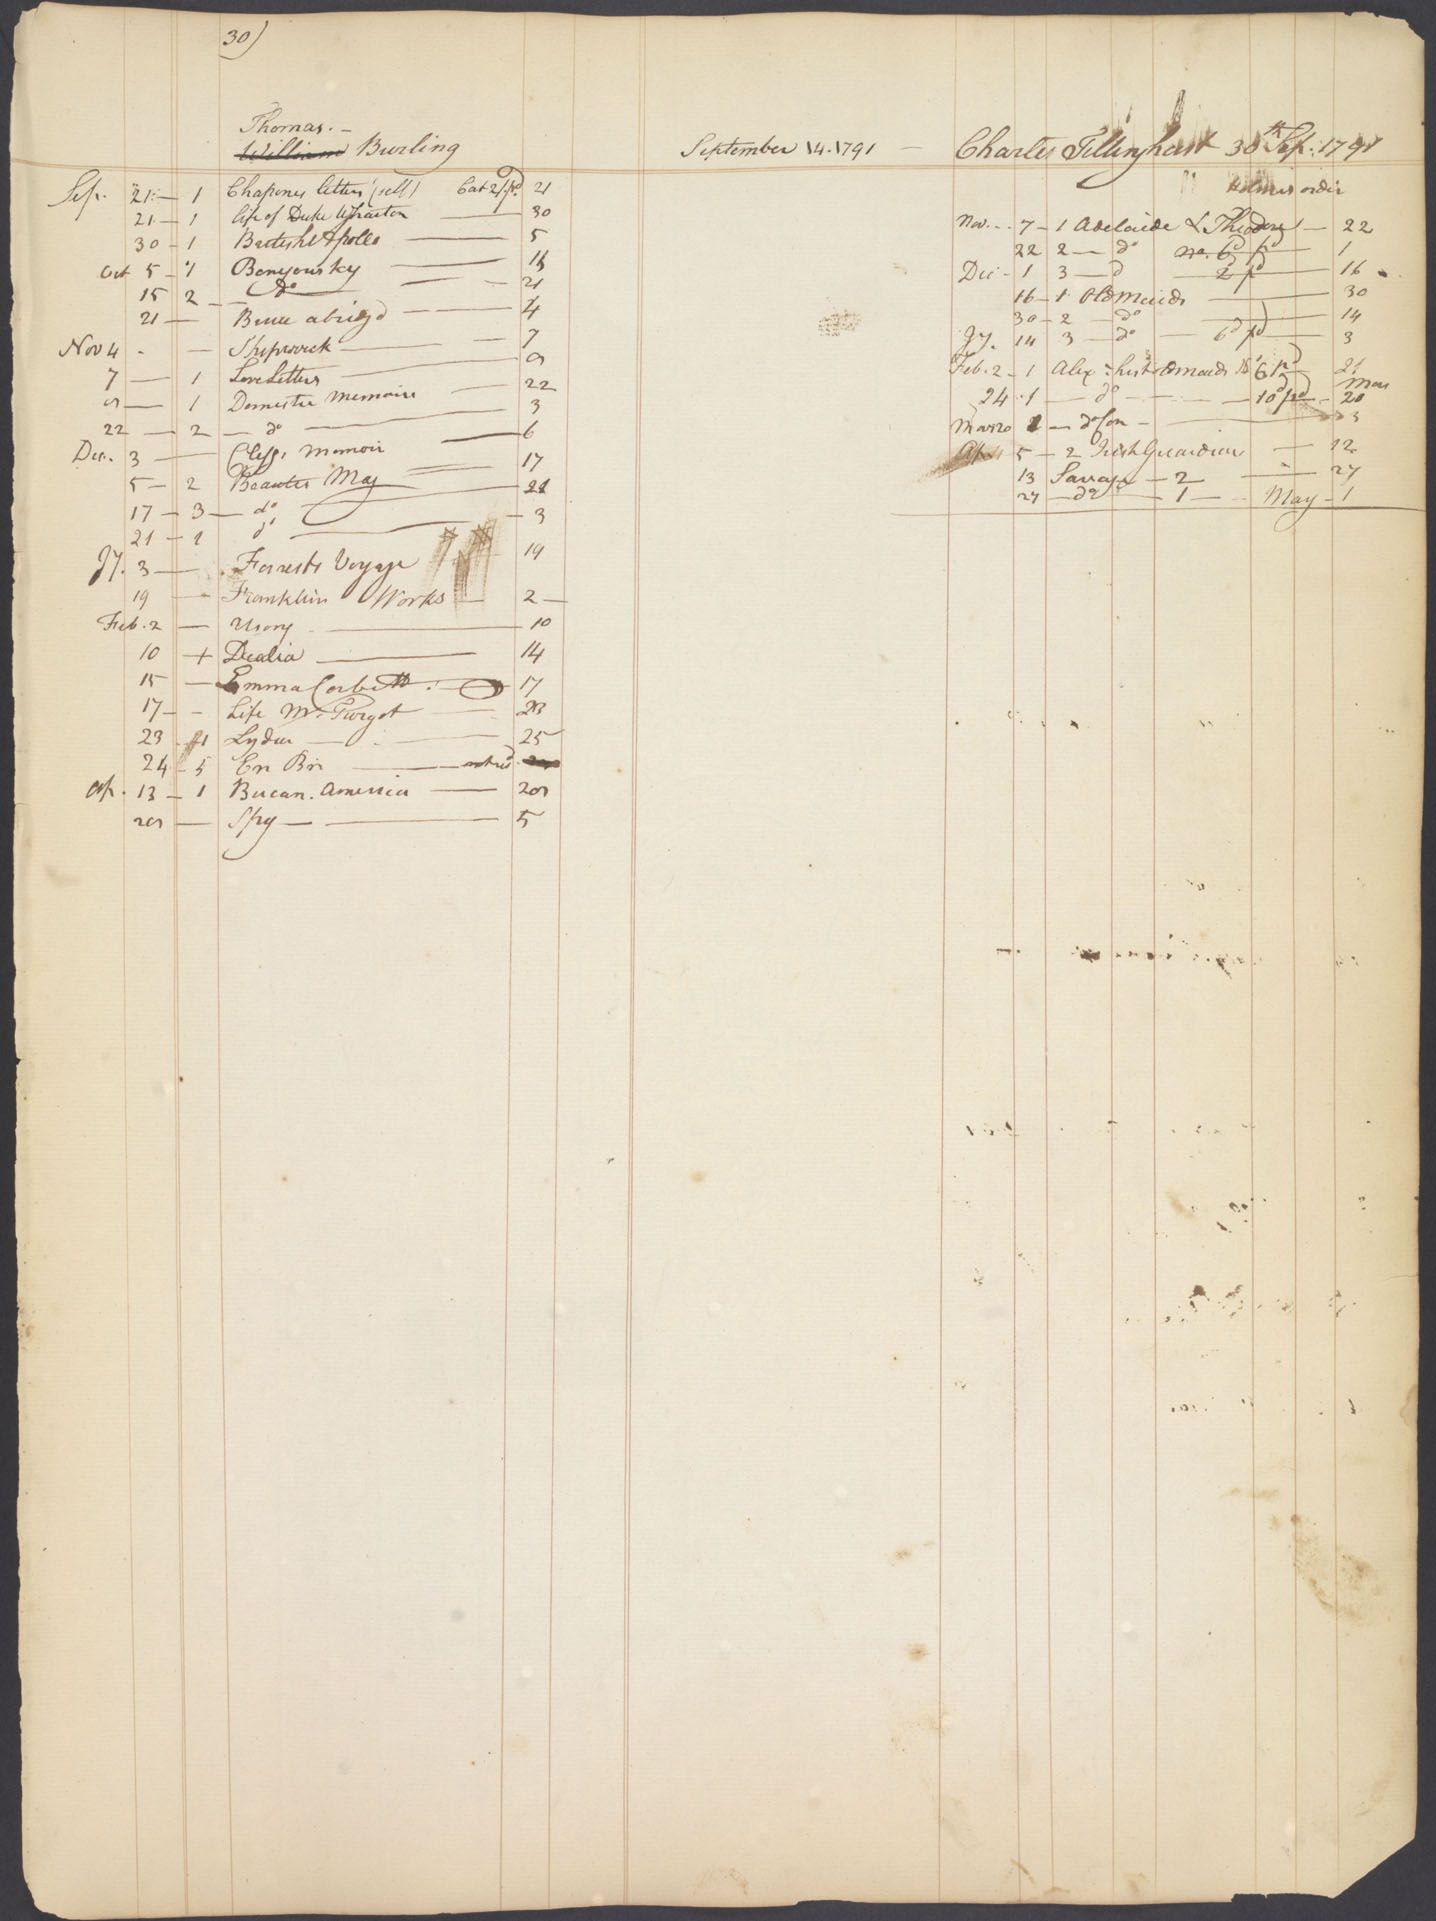 30)
Thomas. –
William Burling
September 14. 1791 —
Sep. 21 — 1 Chapones letters (self) Cat 2/ pd. 21
21 — 1 life of Duke Wharton — 30
30 – 1 British Apollo — 5
Oct 5 – 1 Benyousky — 15
15 2 — do — 21
21 — Bruce abrigd — 4
Nov 4 . — Shipwrick — 7
7 — 1 Love Letters — 9
9 — 1 Domestic Memoirs — 22
22 — 2 — do — 3
Dec. 3 — Clefs. Memoir — 6
5 — 2 Beauties Mag — 17
17 — 3 — do — 21
21 – 1 do — 3
Jy. 3 — Forrests Voyage 19
19 — Franklin Works — 2 —
Feb. 2 — Usury — 10
10 + Delia — 14
15 — Emma Corbett — 17
17 – – Life Mr. Turgot — 23
23 – 1 Lydia — 25
24 – 5 En Bri — entred
Ap. 13 – 1 Bucan. America — 29
29 — Spy — 5
Charles Tillinghast 30th Sep. 1791
Holmes order
Nov. – 7 – 1 Adelaide & Theodore — 22
22 2 — do no. 6d pd — 1
Dec – 1 3 — d 2 pd — 16
16 – 1 Old Maids — 30
30 – 2 — do — 14
Jy. 14 3 — do — 6d pd — 3
Feb. 2 – 1 Alex: hist Omaids 6 pd 21
24 . 1 — do — 10d pd — Mar 20
Mar 20 2 — do Con – — 3
Ap. 5 – 2 Irish Guardian — 12
13 Savage – 2 — 27
27 — do — 1 — May – 1